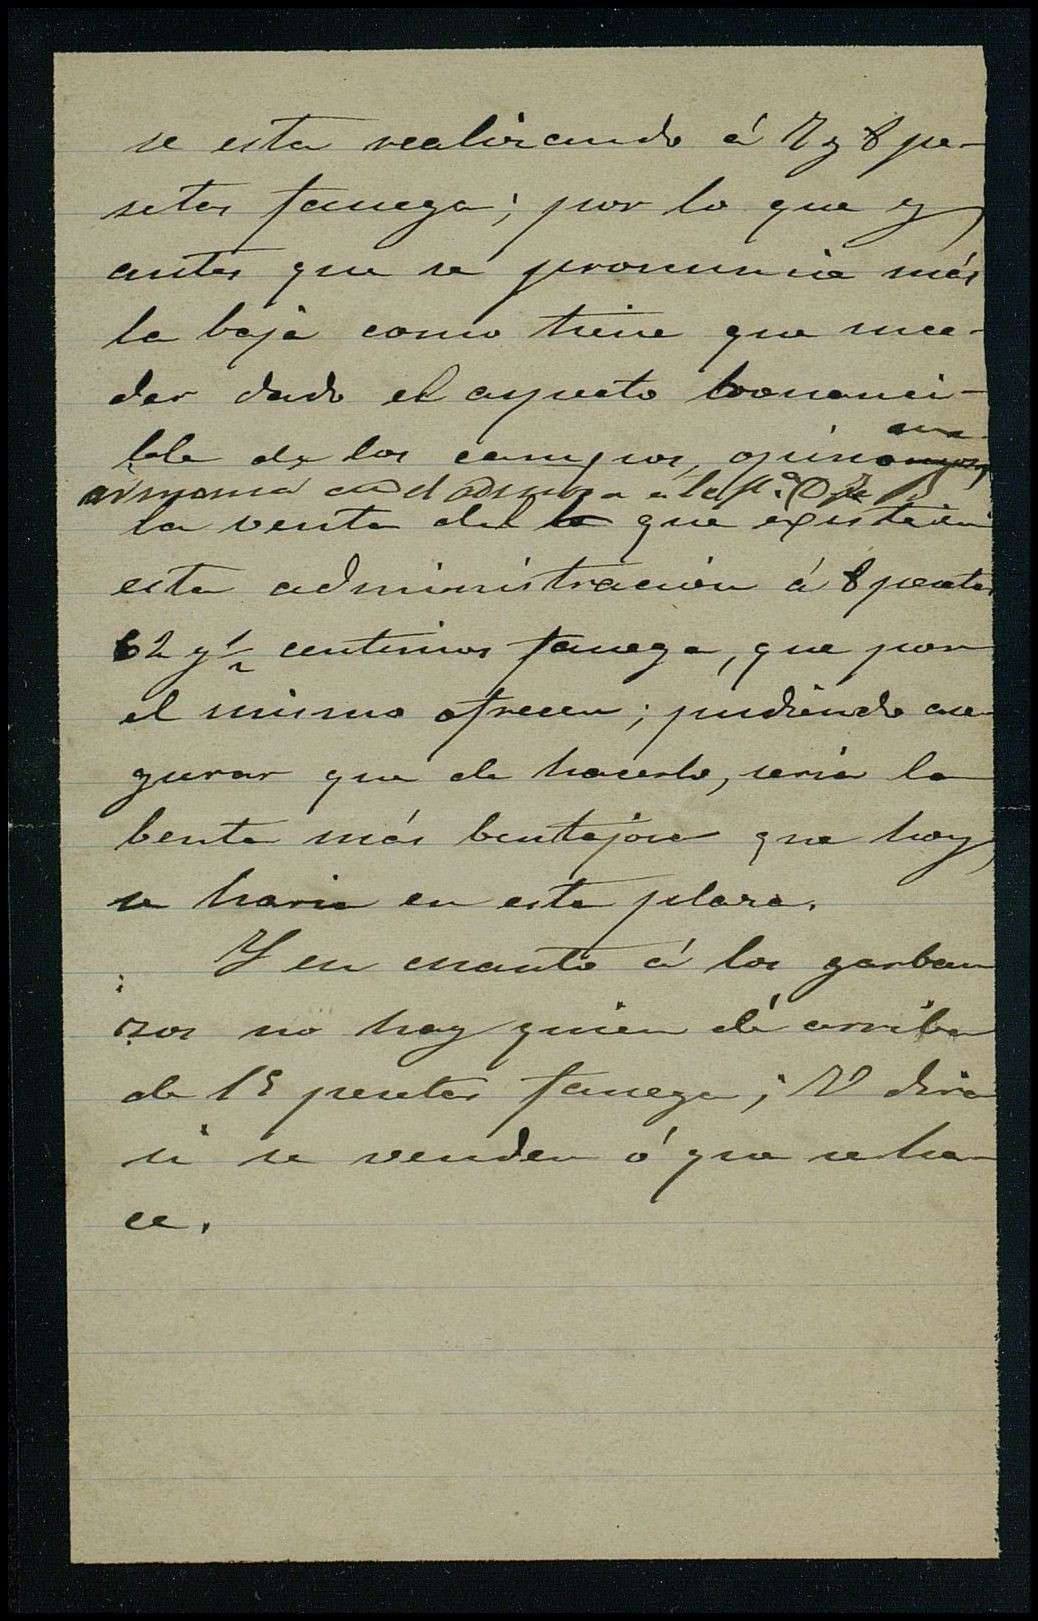 se esta realizando á 7 y 8 pe-
setas fanega; por lo que y
antes que se pronuncie más
la baja como tiene que suce-
der dado el aspecto bonanci-
ble de los campos, opino
armonia con el á la
la venta del que existe en
esta administracion á 8 pesetas
62 y ½ centimos fanega, que por
el mismo ofrecen; pudiendo ase
gurar que de hacerlo, seria la
benta más bentajosa que hoy
se haria en esta plaza.
Y en cuanto á los garban
zos no hay quien dé arriba
de 15 pesetas fanega; V dira
si se venden ó que se ha-
ce.